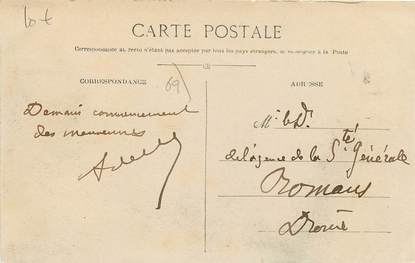 CARTE POSTALE
Correspondance au recto n'étant pas acceptée par tous les pays étrangers, se renseigner à la Poste
CORRESPONDANCE
69
Demain commencement
des manœuvres
ADRESSE
Mr le Dr
de l'agence de la Sté Générale
Romans
Drome